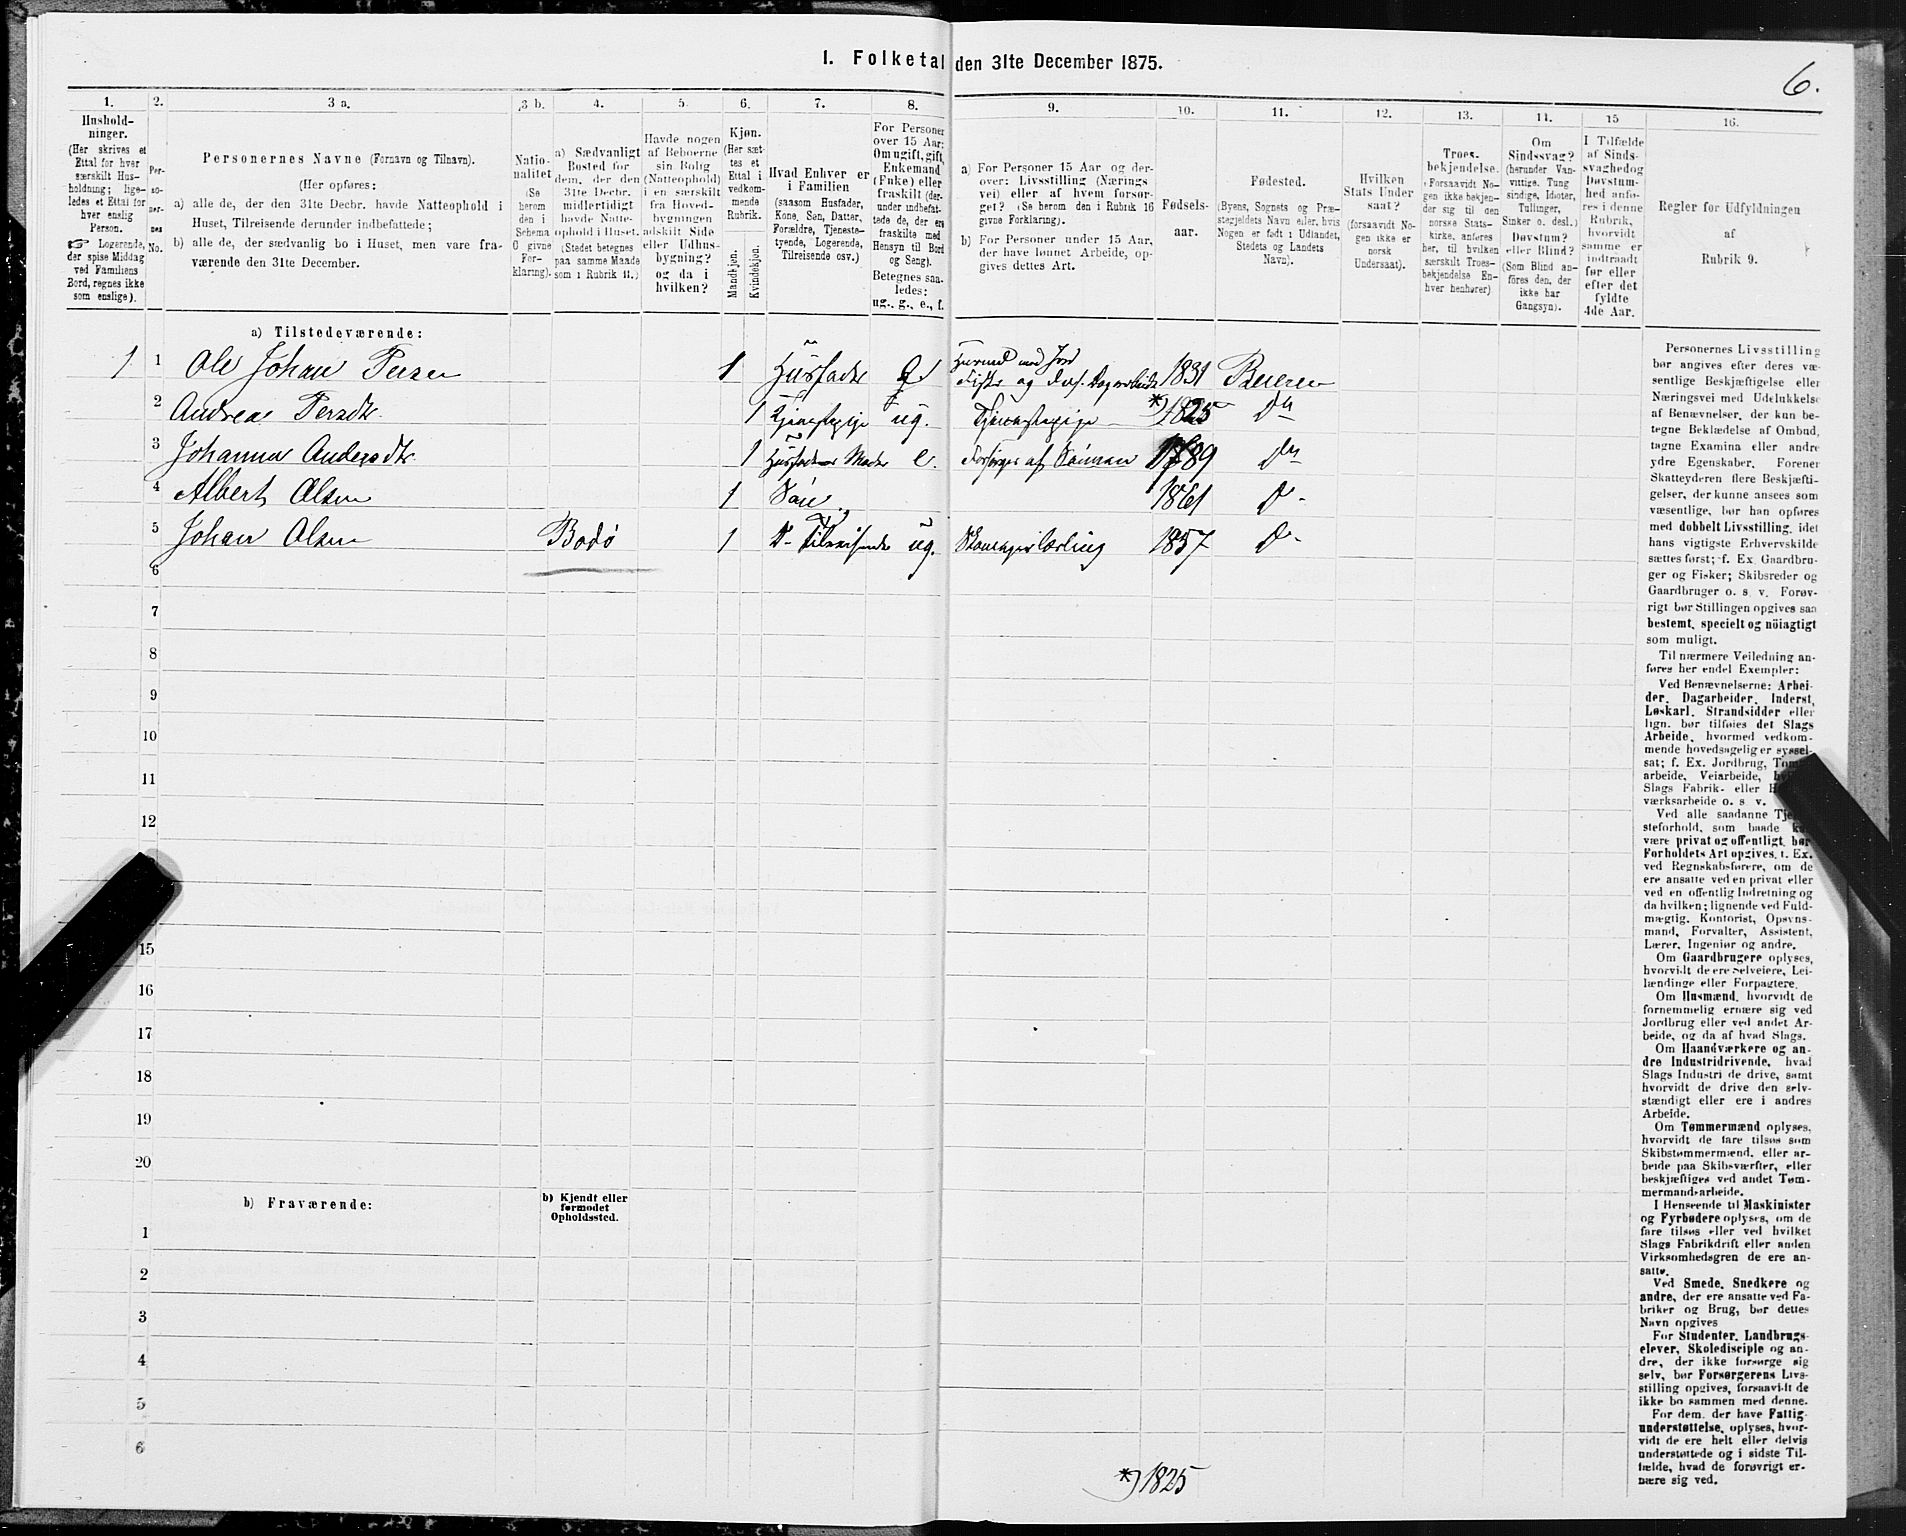 1. Folketal den 31te December 1875.
6.
1.
Hushold-
ninger.
(Her skrives et
Ettal for hver
særskilt Hus-
holdning; lige-
ledes et Ettal for
hver enslig
Person.
☞ Logerende,
der spise Middag
ved Familiens
Bord, regnes ikke
som enslige).
2.
Per-
so-
ner-
nes
No.
3 a.
Personernes Navne (Fornavn og Tilnavn).
(Her opføres:
a) alle de, der den 31te Decbr. havde Natteophold i
Huset, Tilreisende derunder indbefattede;
b) alle de, der sædvanlig bo i Huset, men vare fra-
værende den 31te December.
3 b.
Natio-
nalitet
(Se
herom
den i
Schema
O givne
For-
klaring).
4.
a) Sædvanligt
Bosted for
dem, der den
31te Decbr.
midlertidigt
havde Natte-
ophold i Huset.
(Stedet betegnes
paa samme Maade
som i Rubrik 11.)
5.
Havde nogen
af Beboerne
sin Bolig
(Natteophold)
i en særskilt
fra Hoved-
bygningen
adskilt Side
eller Udhus-
bygning?
og da i
hvilken?
6.
Kjøn.
(Her sæt-
tes et
Ettal i
vedkom-
mende
Rubrik.
Mandkjøn.
Kvindekjøn.
7.
Hvad Enhver er
i Familien
(saasom Husfader,
Kone, Søn, Datter,
Forældre, Tjeneste-
tyende, Logerende,
Tilreisende osv.)
8.
For Personer
over 15 Aar:
Om ugift, gift,
Enkemand
(Enke) eller
fraskilt (der-
under indbefat-
tede de, der ere
fraskilte med
Hensyn til Bord
og Seng).
Betegnes saa-
ledes:
ug., g., e., f.
9.
a) For Personer 15 Aar og der-
over: Livsstilling (Nærings
vei) eller af hvem forsør-
get? (Se herom den i Rubrik 16
givne Forklaring).
b) For Personer under 15 Aar,
der have lønnet Arbeide, op-
gives dettes Art.
10.
Fødsels-
aar.
11.
Fødested.
(Byens, Sognets og Præ-
stegjeldets Navn eller, hvis
Nogen er født i Udlandet,
Stedets og Landets
Navn).
12.
Hvilken
Stats Under
saat?
(forsaavidt No-
gen ikke er
norsk
Undersaat).
13.
Troes-
bekjendelse.
(Forsaavidt No-
gen ikke bekjen-
der sig til den
norske Stats-
kirke, anføres
her, til hvilken
særskilt Troes-
bekjendelse En-
hver henhører)
14.
Om
Sindssvag?
(herunder Van-
vittige, Tung
sindige, Idioter,
Tullinger,
Sinker o. desl.)
Døvstum?
eller Blind?
(Som Blind an-
føres den, der
ikke har
Gangsyn).
15
I Tilfælde
af Sinds-
svaghed og
Døvstum-
hed anfø-
res i denne
Rubrik,
hvorvidt
samme er
indtraadt
før eller
efter det
fyldte
4de Aar.
16.
Regler før Udfyldningen
af
Rubrik 9.
a) Tilstedeværende:
1 1 Ole Johan Persen 1 Husfader g Husmand med Jord Fisker og des. Dagarbeide 1831 Beieren
2 Andrea Persdtr. 1 Tjenestepige ug. Tjenestepige *) 1825 Do
3 Johanna Andersdtr. 1 Husfaderens Moder e. Forsørges af Sønnen 1789 Do
4 Albert Olsen 1 Søn 1861 Do
5 Johan Olsen Bodø 1 Do Tilreisende ug. Lærling 1857 Do
6
7
8
9
10
11
12
15
16
17
18
19
20
b) Fraværende:
b) Kjendt eller
formodet
Opholdssted.
1
2
3
4
5
6
*) 1825
Personernes Livsstilling
bør angives efter deres væ
sentlige Beskjæftigelse eller
Næringsvei med Udelukkelse
af Benævnelser, der kun be-
tegne Beklædelse af Ombud,
tagne Examina eller andre
ydre Egenskaber. Forener
Skatteyderen flere Beskjæfti-
gelser, der kunne ansees som
væsentlige, bør han opføres
med dobbelt Livsstilling, idet
hans vigtigste Erhvervskilde
sættes først; f. Ex. Gaardbru-
ger og Fisker; Skibsreder og
Gaardbruger o. s. v. Forøv-
rigt bør Stillingen opgives saa
bestemt, specielt og nöiagtigt
som muligt.
Til nærmere Veiledning an-
føres her endel Exempler:
Ved Benævnelserne: Arbei-
der, Dagarbeider, Inderst,
Løskarl, Strandsidder eller
lign. bør tilføies det Slags
Arbeide, hvormed vedkom-
mende hovedsagelig er syssel-
sat; f. Ex. Jordbrug,
arbeide, Veiarbeide,
Slags Fabrik- eller
værksarbeide o. s. v.
Ved alle saadanne
steforhold, som baade
være privat og offentligt, bør
Forholdets Art opgives, f. Ex.
ved Regnskabsførere, om de
ere ansatte ved en privat eller
ved en offentlig Indretning og
da hvilken; lignende ved Fuld-
mægtig, Kontorist, Opsyns-
mand, Forvalter, Assistent,
Lærer, Ingeniør og andre.
Om Gaardbrugere oplyses,
hvorvidt de ere Selveiere, Lei-
lændinge eller Forpagtere.
Om Husmænd, hvorvidt de
fornemmelig ernære sig ved
Jordbrug eller ved andet Ar-
beide, og da af hvad Slags.
Om Haandværkere og an-
dre Industridrivende, hvad
Slags Industri de drive, samt
hvorvidt de drive den selv-
stændigt eller ere i andres
Arbeide.
Om Tømmermænd oplyses,
hvorvidt de fare tilsøs som
Skibstømmermænd, eller ar-
beide paa Skibsværfter, eller
beskjæftiges ved andet Tøm-
mermandsarbeide.
I Henseende til Maskinister
og Fyrbødere oplyses, om de
fare tilsøs eller ved hvilket
Slags Fabrikdrift eller anden
Virksomhedsgren de ere an-
satte.
Ved Smede, Snedkere og
andre, der ere ansatte ved Fa-
briker og Brug, bør dettes
Navn opgives
For Studenter, Landbrugs-
elever, Skoledisciple og an-
dre, der ikke forsørge sig
selv, bør Forsørgerens Livs-
stilling opgives, forsaavidt de
ikke bo sammen med denne.
For dem, der have Fattig-
understøttelse, oplyses, hvor-
vidt de ere helt eller delvis
understøttede og i sidste Til-
fælde, hvad de forøvrigt er-
nære sig ved.